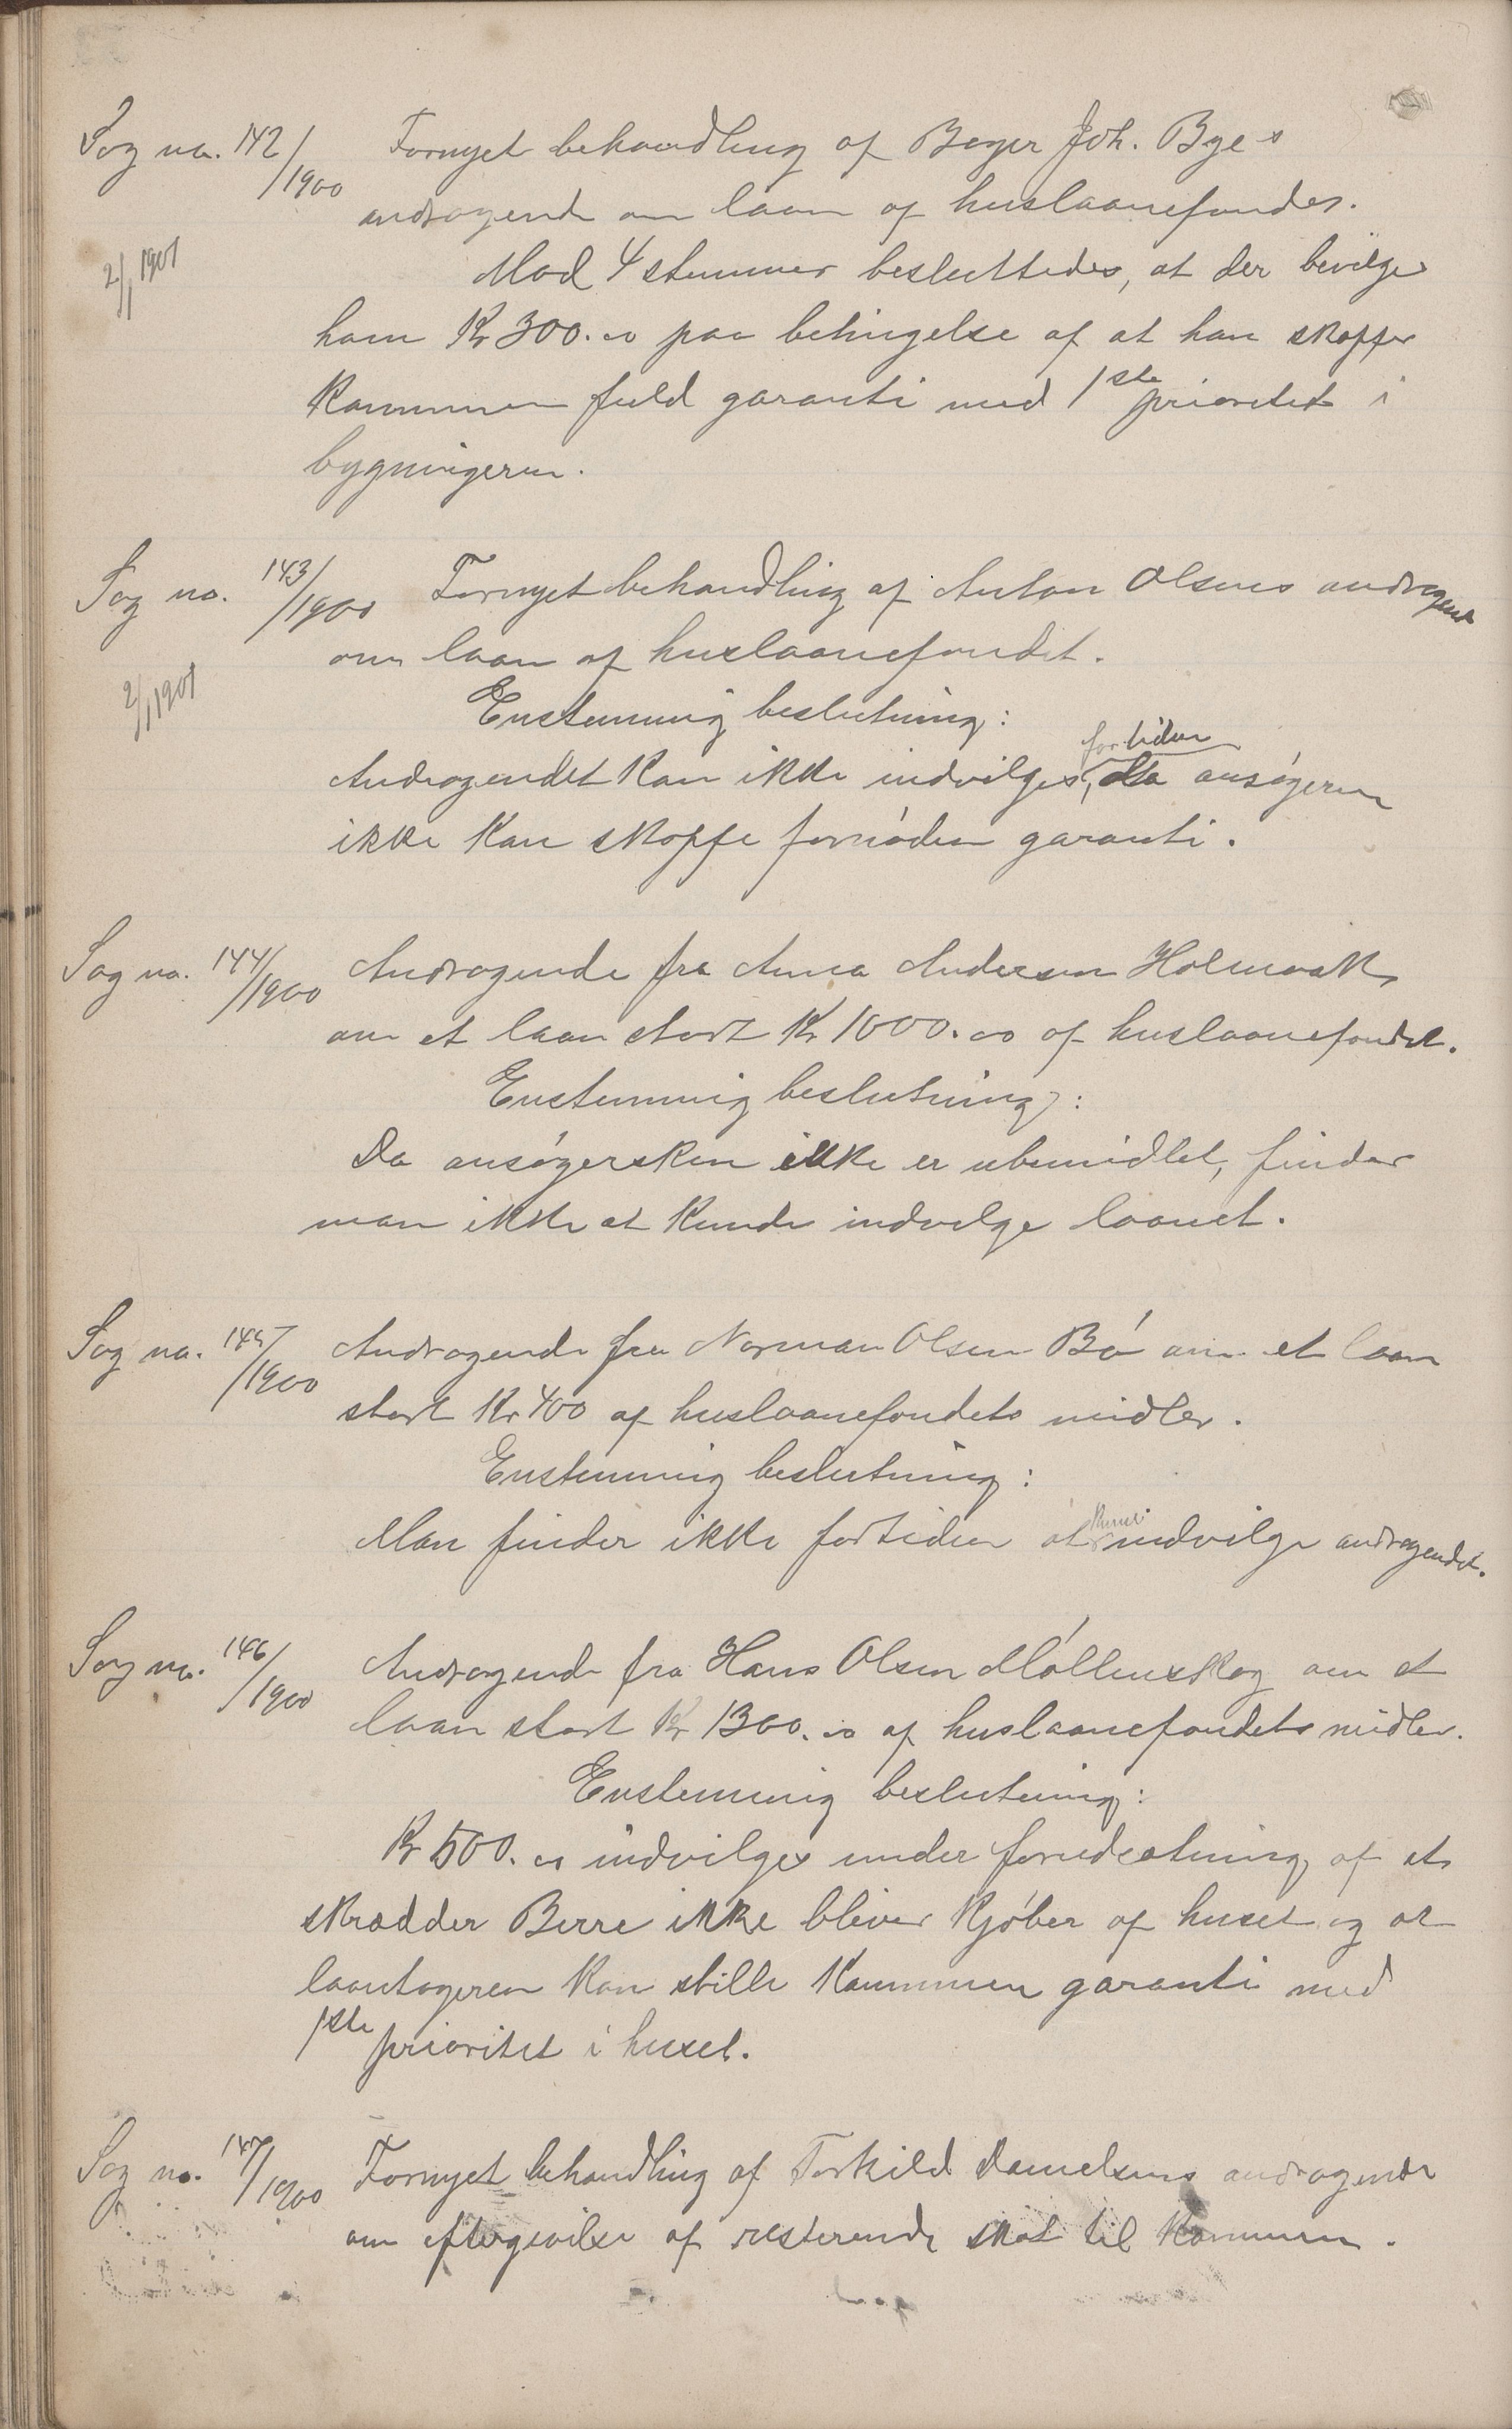 Sag no. 142/1900 Fornyet behandling af Bager Joh. Byes
andragende om laan af huslaanefondet.
2/1 1901
Mod 4 stemmer besluttedes, at der bevilges
ham Kr 300.00 paa betingelse af at han skaffer
Kommunen fuld garanti med 1ste prioritet i
bygningerne.
Sag no. 143/1900 Fornyet behandling af Anton Olsens andragende
om laan af huslaanefondet.
2/1 1901
Enstemmig beslutning:
Andragendet kan ikke indvilges fortiden, da ansøgeren
ikke kan skaffe fornøden garanti.
Sag no. 144/1900 Andragende fra Anna Andersen Holmvask
om et laan stort Kr 1000.00 af huslaanefondet.
Enstemmig beslutning:
Da ansøgersken ikke er ubemidlet, finder
man ikke at kunde indvilge laanet.
Sag no. 145/1900 Andragende fra Norman Olsen Bó om et laan
stort Kr 400 af huslaanefondets midler.
Enstemmig beslutning:
Man finder ikke fortiden at kunne indvilge andragendet.
Sag no. 146/1900 Andragende fra Hans Olsen Møllenskog om et
laan stort Kr 1300.00 af huslaanefondets midler.
Enstemmig beslutning:
Kr 500.00 indvilges under forudsætning af at
skrædder Berre ikke bliver kjøber af huset og at
laantageren kan stille Kommunen garanti med
1ste prioritet i huset.
Sag no. 147/1900 Fornyet behandling af Torkild Danielsens andragende
om eftergivelse af resterende skat til Kommunen.